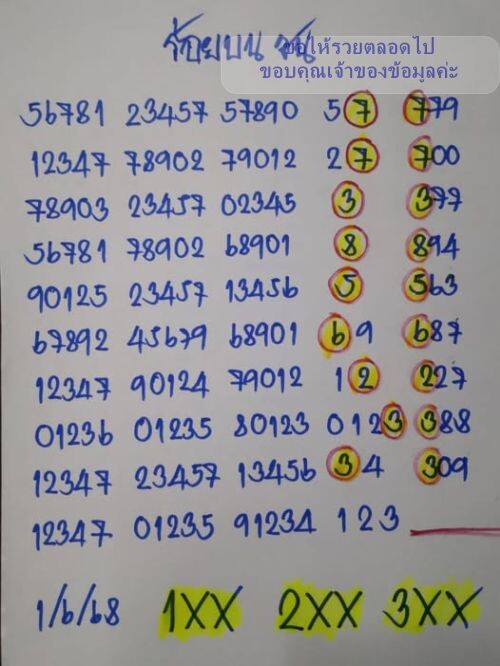 ร้อยบน ชน
ขอให้รวยตลอดไป
ขอบคุณเจ้าของข้อมูลค่ะ
56781 23457 57890 5 7 779
12347 78902 79012 2 7 700
78903 23457 02345 3 377
56781 78902 68901 8 894
90125 23457 13456 5 563
67892 45679 68901 6 9 687
12347 90124 79012 1 2 227
01236 01235 80123 0 1 2 3 388
12347 23457 13456 3 4 309
12347 01235 91234 1 2 3
1/6/68 1XX 2XX 3XX